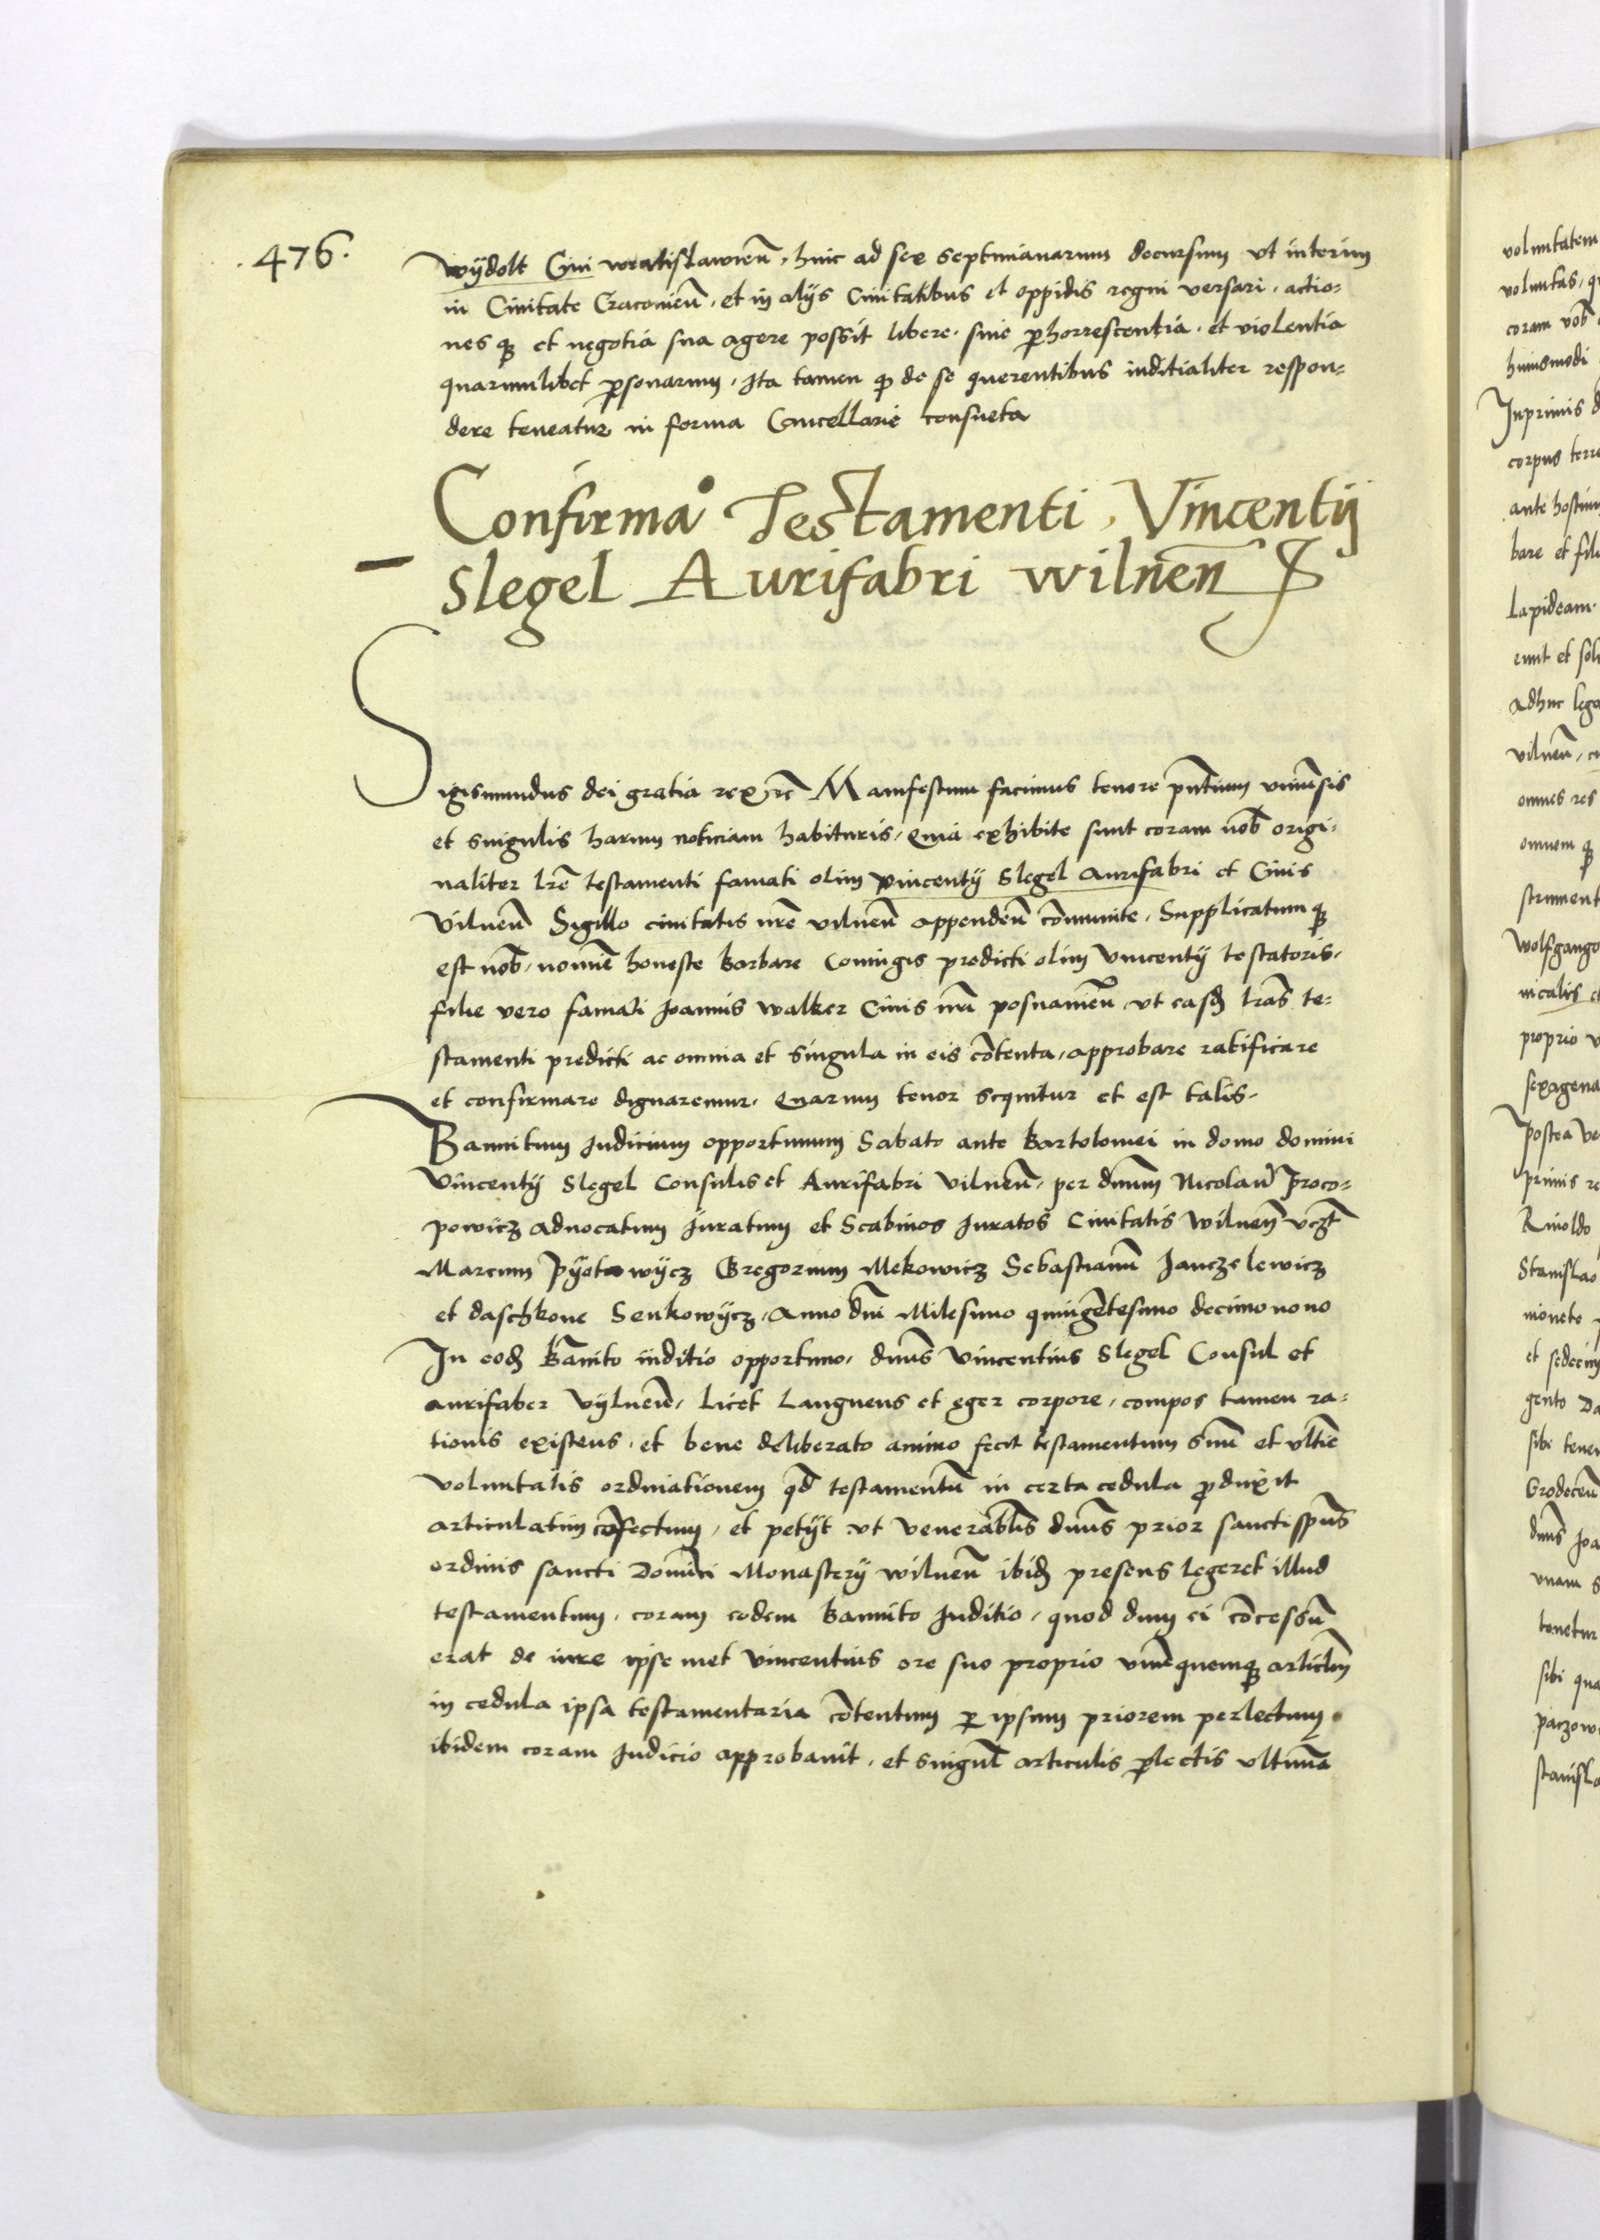 .476.
wÿdolt Ciui wratislawień, hinc ad sex septimanarum decursum vt interim
in Ciuitate Cracouień, et in alijs Ciuitatibus et oppidis regni versari, actio=
nes qz et negotia sua agere possit libere, sine phorrescentia, et violentia
quarumlibet psonarum, Ita tamen qz de se querentibus iuditialiter respon=
dere teneatur in forma Cancellarie consueta
Confirmao Testamenti, Vincentij
Slegel Aurifabri wilneñ
Sigismundus dei gratia rex rc̄ Manifestum facimus tenore pñtium vniuersis
et singulis harum noticiam habituris, Quia exhibite sunt coram nob̄ origi=
naliter lrē testamenti famati olim vincentij Slegel Aurifabri et Ciuis
Vilneñ Sigillo ciuitatis nrē vilneñ appendeñ cōmunite, Supplicatum qz
est nob̄, nomiē honeste Barbare Coniugis predicti olim Vincentij testatoris,
filie vero famati Joannis walker Ciuis nrī posnanieñ vt easdz lrās te=
stamenti predicti ac omnia et singula in eis cōtenta, approbare ratificare
et confirmare dignaremur, Quarum tenor sequitur et est talis,
Bannitum Judicium opportunum Sabato ante Bartolomei in domo domini
Vincentij Slegel Consulis et Aurifabri Vilneñ, per dnūm Nicolaū Proco=
powicz aduocatum Juratum et Scabinos Juratos Ciuitatis Wilneñ vczt̄
Marcum Pÿotrowÿcz Gregorium Mekowicz Sebastianū Janczelewicz
et daschkone Senkowÿcz, Anno dnī Milesimo quingētesimo decimo nono
In eodz Bānito iuditio opportuno, dnūs Vincentius Slegel Consul et
aurifaber Vÿlneñ, licet Languens et eger corpore, compos tamen ra=
tionis existens, et bene deliberato animo fecit testamentum suū et vltiē
voluntatis ordinationem qd̄ testamentū in certa cedula pduxit
articulatim cōfectum, et petijt vt venerabīlis dnūs prior sancti spūs
ordinis sancti Dominici Monasterij wilneñ ibidz presens legeret illud
testamentum, coram eodem Bannito Juditio, quod dum ei cōcessū
erat de iure ipse met vincentius ore suo proprio vnūquemqz articlm̄
in cedula ipsa testamentaria cōtentum p ipsum priorem perlectum,
ibidem coram Judicio approbauit, et singul̄ articulis plectis vltimā
voluntatem
voluntas, q
coram nob̄
huiusmodi
Inprimis d
corpus terre
ante hostium
bare et fili
Lapideam
erunt et sol
Adhuc lega
vilneñ, c
omnes res
omnem qz
strument
Wolfgango
nicalis et
proprio v
sexagena
Postea ve
primis re
Rinoldo
Stanislao
monete
et sedecim
gento Da
sibi tene
Grodeceñ
dnūs Joa
vnam s
tenetur
sibi qua
paczow
stanisla